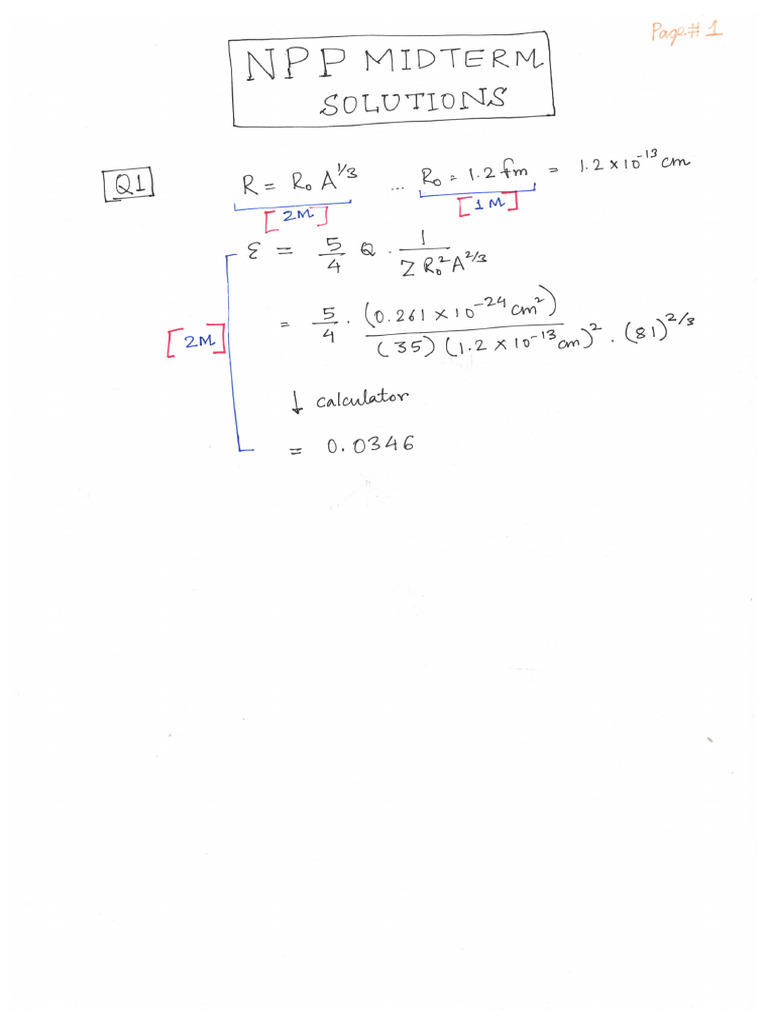 Page # 1
NPP MIDTERM
SOLUTIONS
Q1 R = R₀ A^1/3 ... R₀ = 1.2 fm = 1.2 × 10⁻¹³ cm
[2M] [1M]
ε = 5/4 Q · 1/(Z R₀² A^2/3)
[2M] = 5/4 · (0.261 × 10⁻²⁴ cm²)/((35) (1.2 × 10⁻¹³ cm)² · (81)^2/3)
↓ calculator
= 0.0346